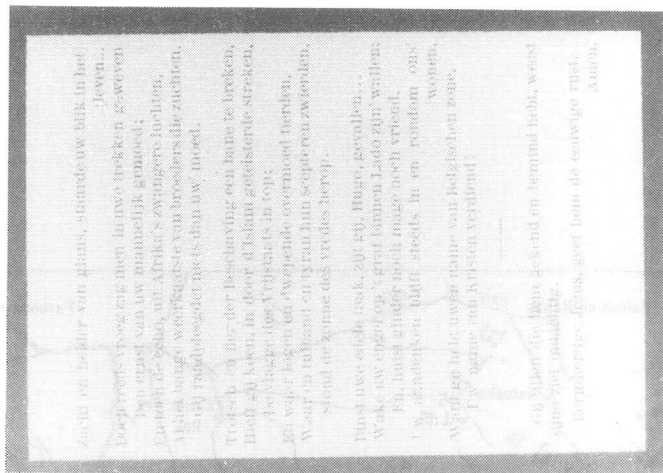 Zacht en helder van glans, stuurde uw blik in het
[leven...
Doch reeds vroeg zag men in uwe trekken geweven
Den ernst van uw mannelijk gemoed;
En toen de echo, uit Afrika's zwangere luchten,
bange van broeders die zuchten,
raadpleegdet niets dan uw moed.
Trotsch, om fier der beschaving een bane te breken,
Hieft gij koen, in door d'Islam geteisterde streken,
De vlagge des Vrijstaats in top;
En waar logen en dwepende overmoed tierden,
Waar en tyran hun scepteren zwierden,
Stond de zonne des vredes herop.
uwe edele taak, zijt gij, Hugo, gevallen...
Wake uw engel op 't graf binnen Lado zijn' wallen;
En, ginder noch mage noch vriend,
Uw aandenken blijft steeds in en rondom ons
wonen,
Want gij hebt uwen name van Belgischen zone,
Uw name van Kristen verdiend!
Gij allen die hem gekend en bemind hebt, weest
niet
Barmhartige Jesus, geef hem de eeuwige rust.
Amen.